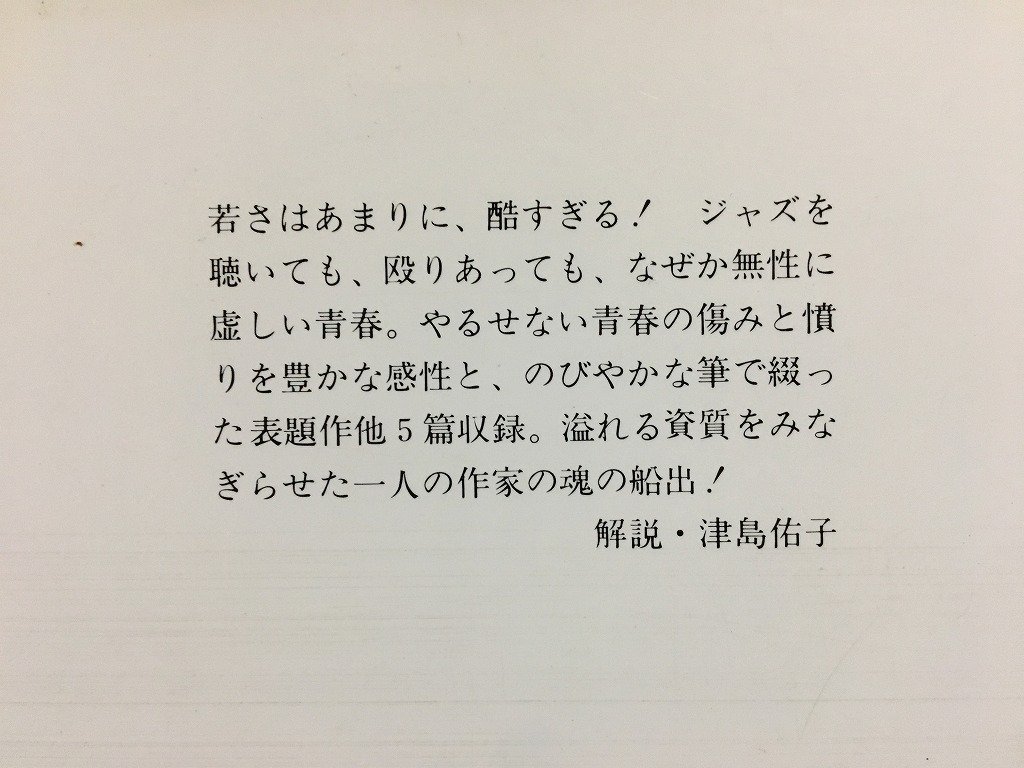 若さはあまりに、酷すぎる！　ジャズを
聴いても、殴りあっても、なぜか無性に
虚しい青春。やるせない青春の傷みと憤
りを豊かな感性と、のびやかな筆で綴っ
た表題作他5篇収録。溢れる資質をみな
ぎらせた一人の作家の魂の船出！
解説・津島佑子